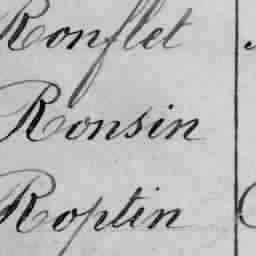 Ronflet
Ronsin
Roptin